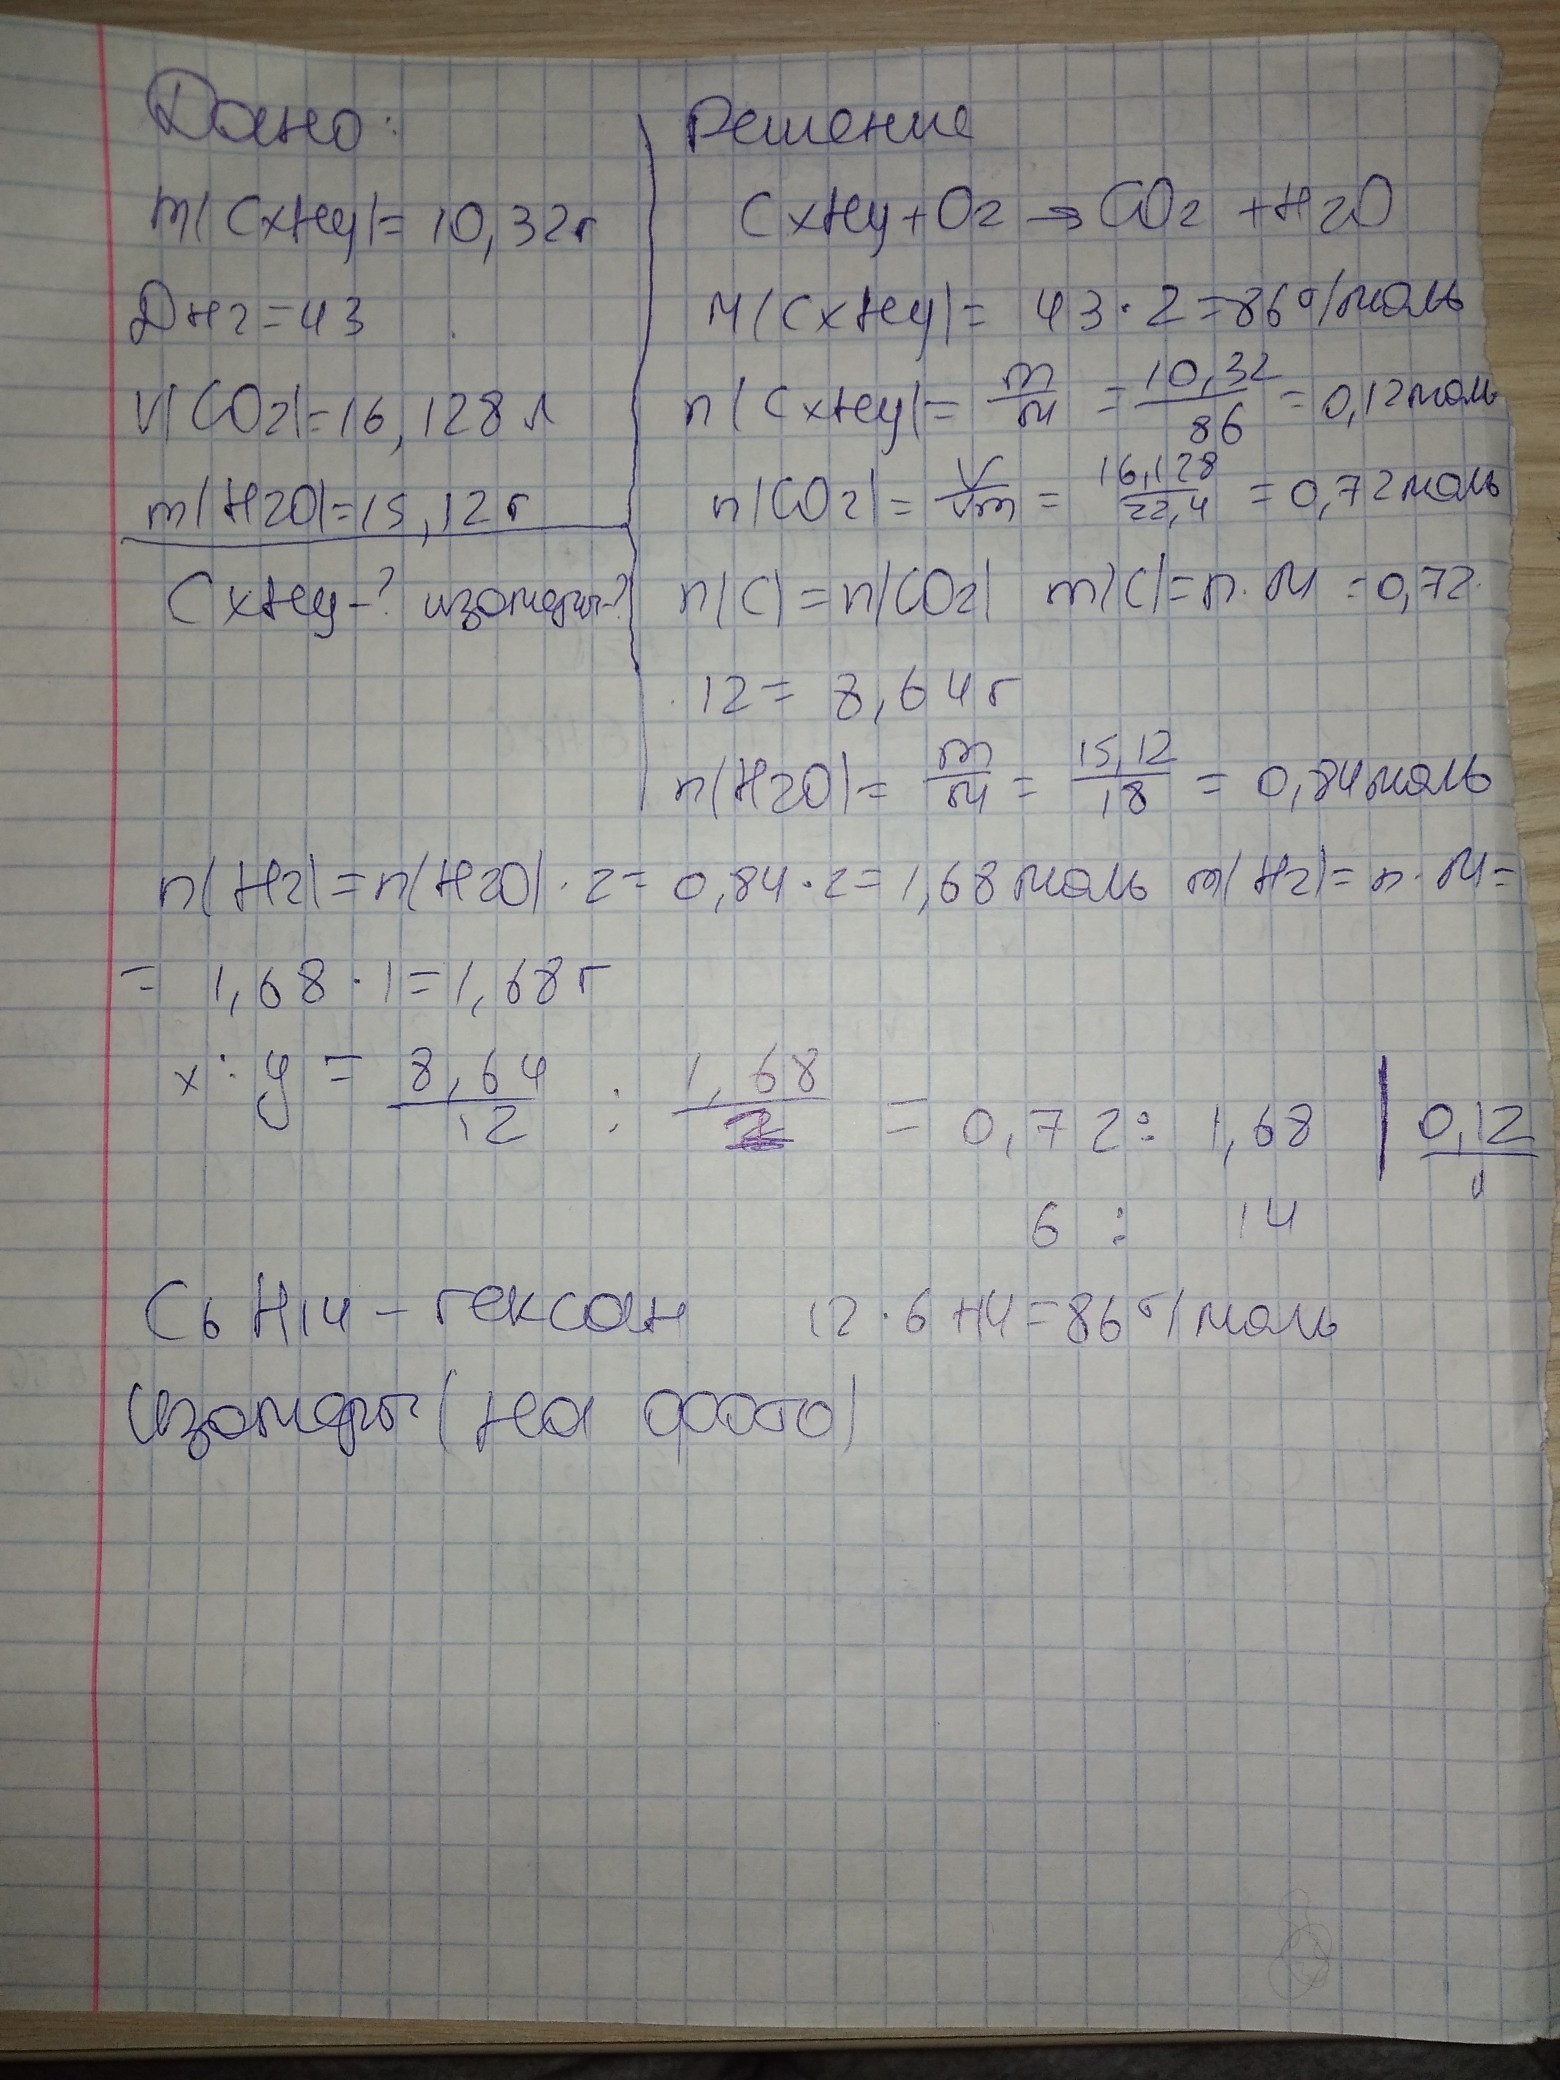 Дано:
m(CxHy)=10,32г
DH2=43
V(CO2)=16,128 л
m(H2O)=15,12г
CxHy-? изомеры-?
Решение
CxHy+O2 → CO2 +H2O
M(CxHy)= 43·2=86г/моль
n(CxHy)= m/M = 10,32/86 = 0,12моль
n(CO2)= V/Vm = 16,128/22,4 = 0,72моль
n(C)=n(CO2) m(C)=n·M =0,72·
·12= 8,64г
n(H2O)= m/M = 15,12/18 = 0,84моль
n(H2)=n(H2O)·2= 0,84·2=1,68моль m(H2)=n·M=
= 1,68·1=1,68г
x:y = 8,64/12 : 1,68/1 = 0,72: 1,68 | 0,12
6 : 14
C6H14 - гексан 12·6+14=86г/моль
Изомеры (на фото)